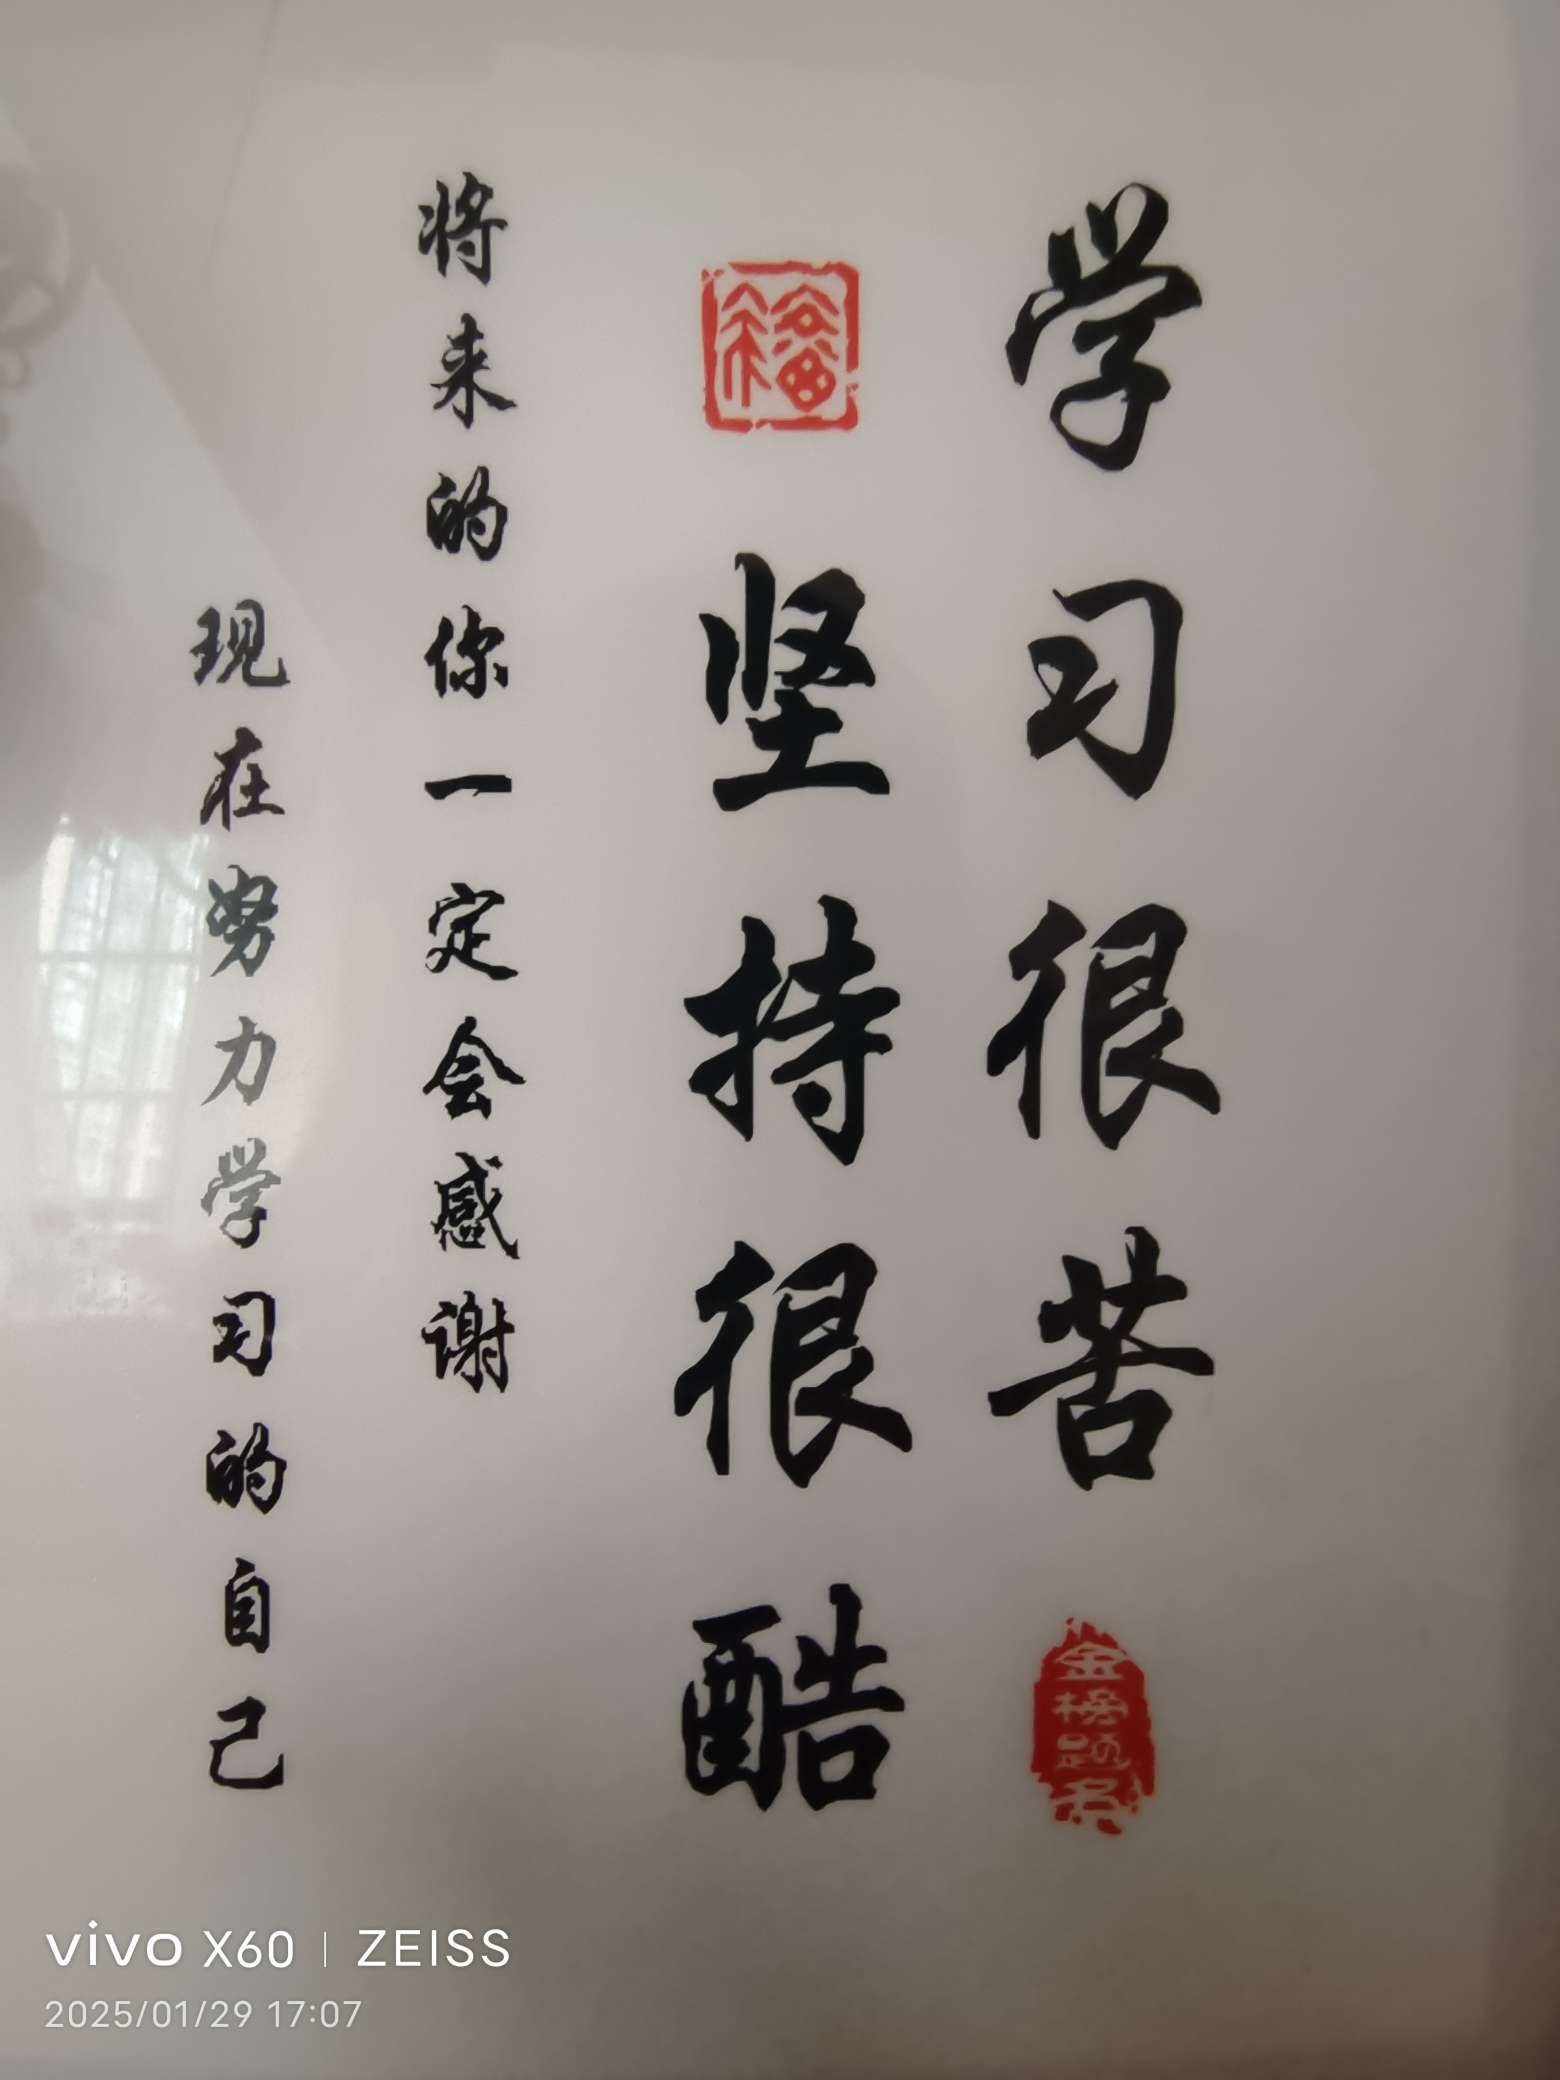 学习很苦
金榜题名
福
坚持很酷
将来的你一定会感谢
现在努力学习的自己
vivo X60 | ZEISS
2025/01/29 17:07